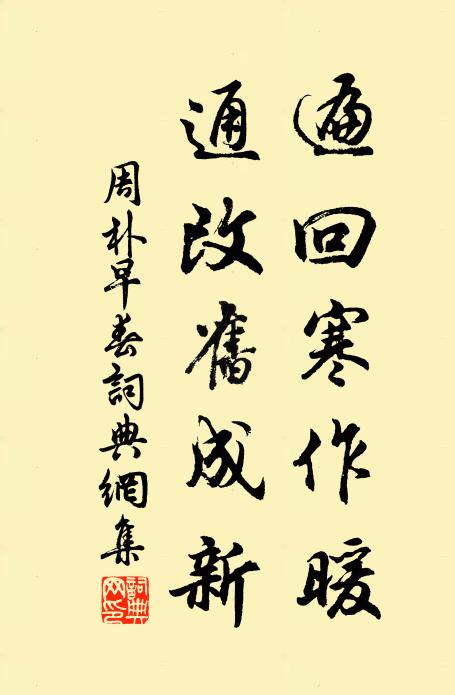 遍回寒作暖
通改舊成新
周朴早春詞典網集
詞典網印